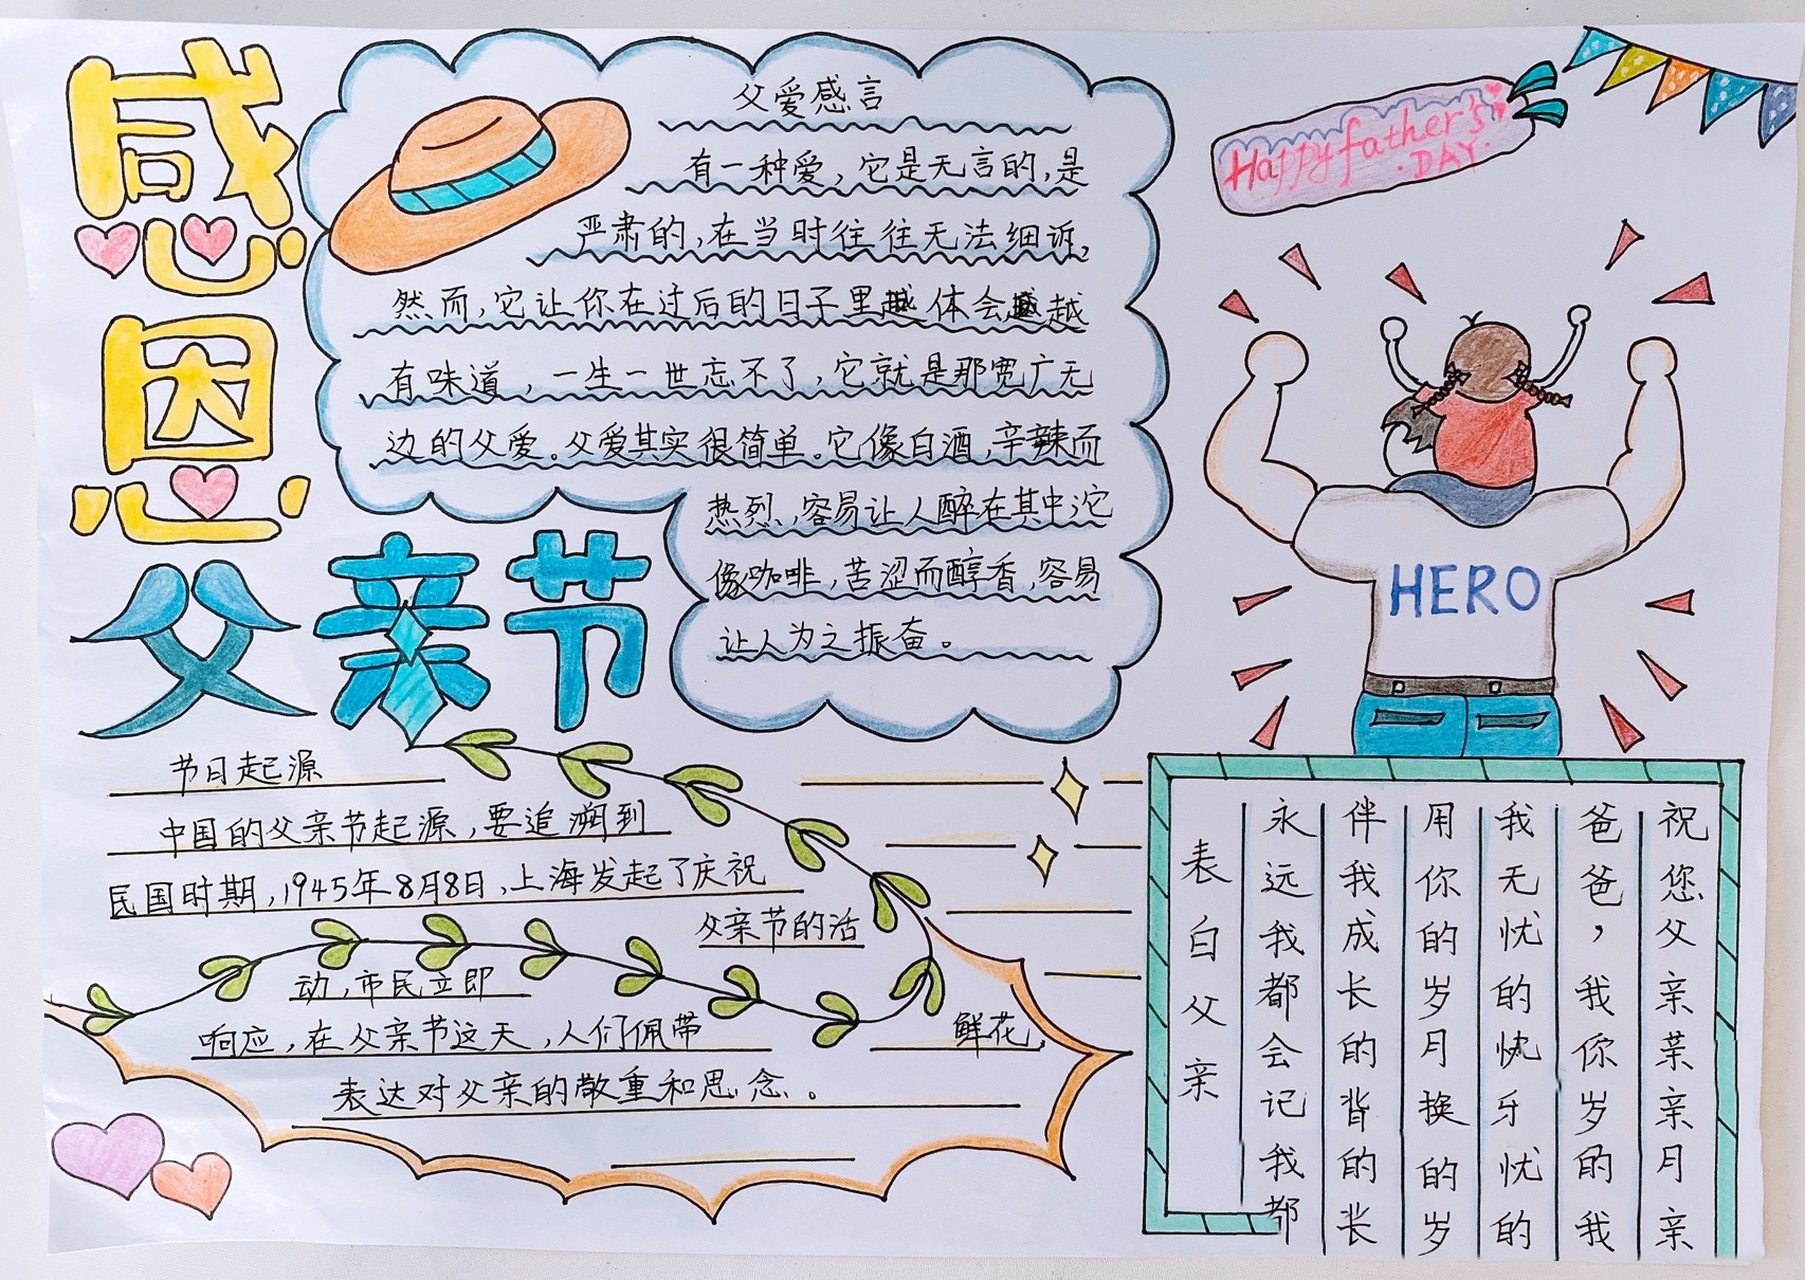 感恩
父亲节
父爱感言
有一种爱，它是无言的，是
严肃的，在当时往往无法细诉，
然而，它让你在过后的日子里越体会越越
有味道，一生一世忘不了，它就是那宽广无
边的父爱。父爱其实很简单。它像白酒，辛辣而
热烈，容易让人醉在其中沱
像咖啡，苦涩而醇香，容易
让人为之振奋。
Happy father's
DAY
HERO
节日起源
中国的父亲节起源，要追溯到
民国时期，1945年8月8日，上海发起了庆祝
父亲节的活
动，市民立即
响应，在父亲节这天，人们佩带
鲜花，
表达对父亲的敬重和思念。
表白父亲
永远我都会记我都
伴我成长的背的长
用你的岁月换的岁
我无忧的快牙忧的
爸爸，我你岁的我
祝您父亲亲月亲